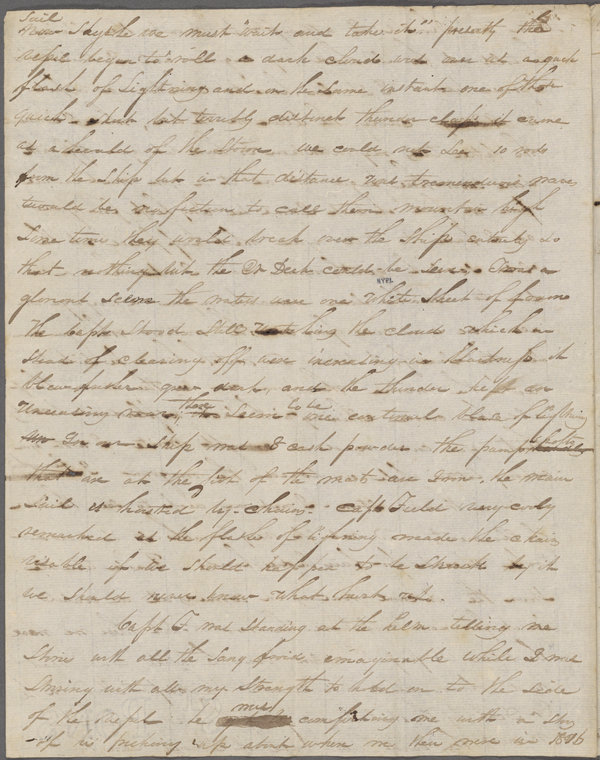 Sail
now Says he we must "wait and take it" presently the
vessel began to roll a dark cloud and a quick
flash of Lightning and in the Same instant one of those
quick short but terribly distinct thunder claps it came
as a herald of the Storm we could not See 10 rods
from the Ship but in that distance was tremendous waves
twould be no fiction to call them mountain high
Some times they would break over the Ship entirely so
that nothing but the Qr Deck could be Seen Twas a
glorious scene the waters were one White Sheet of foam
NYPL
The Capt Stood Still watching the cloud which in
stead of clearing off was increasing in blackness it
blew fresher grew dark, and the thunder kept an
Unceasing roar, there Seems to be one continual blaze of Lightning
In our Ship was 8 cask powder the pump bolts
that are at the foot of the mast are Iron, the main
Sail is hoisted by Chains - Capt Field very cooly
remarked as the flashes of lightning made the chain
visible if we should happen to be Struck by it
we Should never know what hurt us. -
Capt F. was Standing at the helm telling me
Stories with all the Sang froid imaginable while I was
Striving with all my Strength to hold on to the Side
of the vessel he was comforting me with a Story
of his picking up about when we then were in 1816